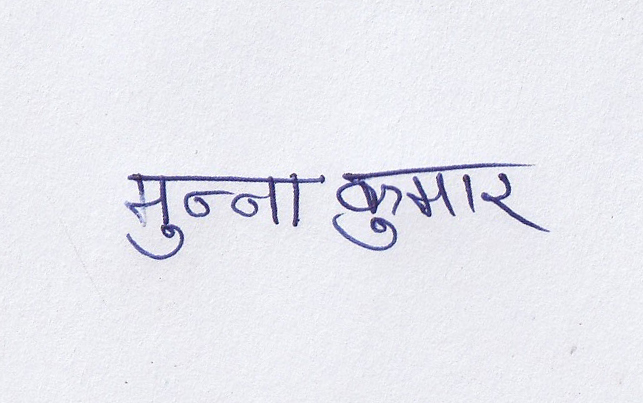 मुन्ना कुमार